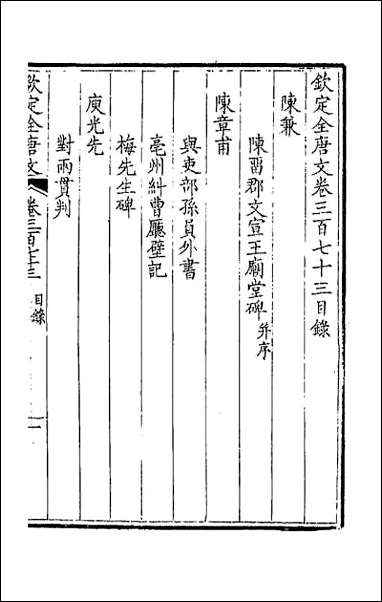 欽定全唐文卷三百七十三目錄
陳兼
陳留郡文宣王廟堂碑并序
陳章甫
與吏部孫員外書
亳州糾曹廳壁記
梅先生碑
庾光先
對兩貫判
欽定全唐文
卷三百七十三 目錄
一